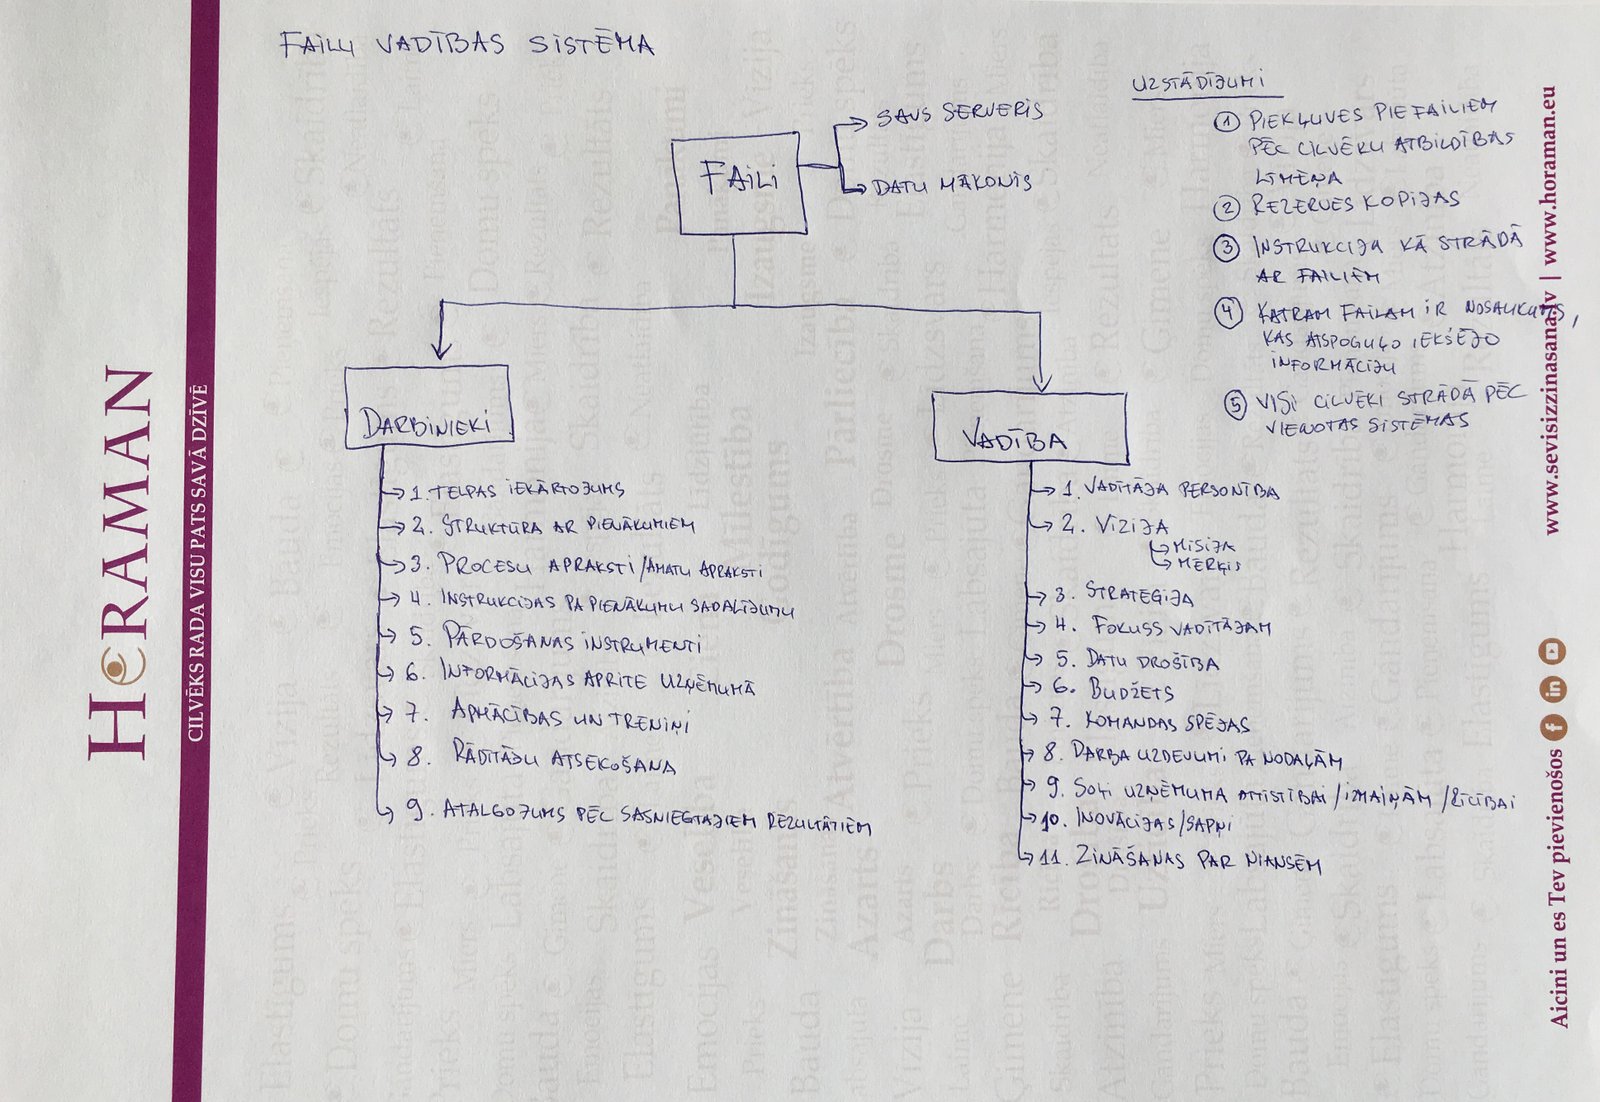 FAILU VADĪBAS SISTĒMA
FAILI
SAVS SERVERIS
DATU MĀKONIS
UZSTĀDĪJUMI
1 PIEKĻUVES PIE FAILIEM
PĒC CILVĒKU ATBILDĪBAS
LĪMEŅA
2 REZERVES KOPIJAS
3 INSTRUKCIJA KĀ STRĀDĀ
AR FAILIEM
4 KATRAM FAILAM IR NOSAUKUMS,
KAS ATSPOGUĻO IEKŠĒJO
INFORMĀCIJU
5 VISI CILVĒKI STRĀDĀ PĒC
VIENOTAS SISTĒMAS
DARBINIEKI
1. TELPAS IEKĀRTOJUMS
2. STRUKTŪRA AR PIENĀKUMIEM
3. PROCESU APRAKSTI/AMATU APRAKSTI
4. INSTRUKCIJAS PA PIENĀKUMU SADALĪJUMU
5. PĀRDOŠANAS INSTRUMENTI
6. INFORMĀCIJAS APRITE UZŅĒMUMĀ
7. APMĀCĪBAS UN TRENIŅI
8. RĀDĪTĀJU ATSEKOŠANA
9. ATALGOJUMS PĒC SASNIEGTAJIEM REZULTĀTIEM
VADĪBA
1. VADĪTĀJA PERSONĪBA
2. VĪZIJA
MISIJA
MĒRĶIS
3. STRATĒĢIJA
4. FOKUSS VADĪTĀJAM
5. DATU DROŠĪBA
6. BUDŽETS
7. KOMANDAS SPĒJAS
8. DARBA UZDEVUMI PA NODAĻĀM
9. SOĻI UZŅĒMUMA ATTĪSTĪBAI/IZMAIŅĀM/RĪCĪBAI
10. INOVĀCIJAS/SAPŅI
11. ZINĀŠANAS PAR NIANSĒM
HORAMAN
CILVĒKS RADA VISU PATS SAVĀ DZĪVĒ
Aicini un es Tev pievienošos
www.sevisizzinasana.lv | www.horaman.eu